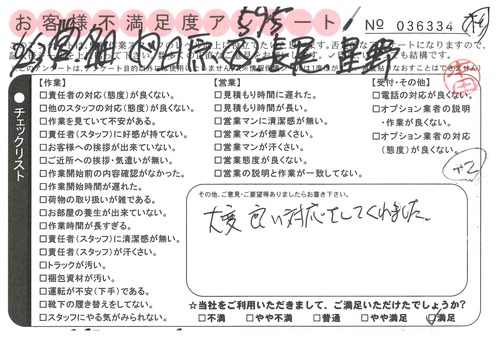 お客様不満足度アンケート
№ 036334
チェックリスト
【作業】
□責任者の対応(態度)が良くない。
□他のスタッフの対応(態度)が良くない。
□作業を見ていて不安がある。
□責任者(スタッフ)に好感が持てない。
□お客様への挨拶が出来ていない。
□ご近所への挨拶・気遣いが無い。
□作業開始前の内容確認がなかった。
□作業開始時間が遅れた。
□荷物の取り扱いが雑である。
□お部屋の養生が出来ていない。
□作業時間が長すぎる。
□責任者(スタッフ)に清潔感が無い。
□責任者(スタッフ)が汗くさい。
□トラックが汚い。
□梱包資材が汚い。
□運転が不安(下手)である。
□靴下の履き替えをしてない。
□スタッフにやる気がみられない。
【営業】
□見積もり時間に遅れた。
□見積もり時間が長い。
□営業マンに清潔感が無い。
□営業マンが煙草くさい。
□営業マンが汗くさい。
□営業態度が良くない。
□営業の説明と作業が一致してない。
【受付・その他】
□電話の対応が良くない。
□オプション業者の説明
・作業が良くない。
□オプション業者の対応
(態度)が良くない。
その他、ご意見・ご要望等ありましたらお書き下さい。
大変良い対応をしてくれました。
☆当社をご利用いただきまして、ご満足いただけたでしょうか?
□不満 □やや不満 □普通 □やや満足 □満足